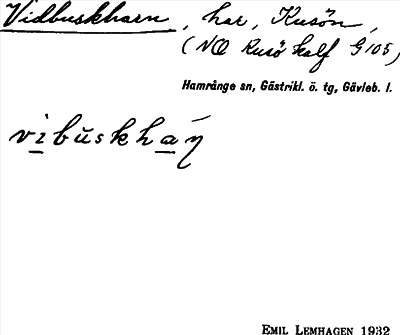 Vidbuskharn, har, Kusön,
(NO Kusö kalf G 105)
Hamrånge sn, Gästrikl. ö. tg, Gävleb. l.
vibŭskháṇ
EMIL LEMHAGEN 1932